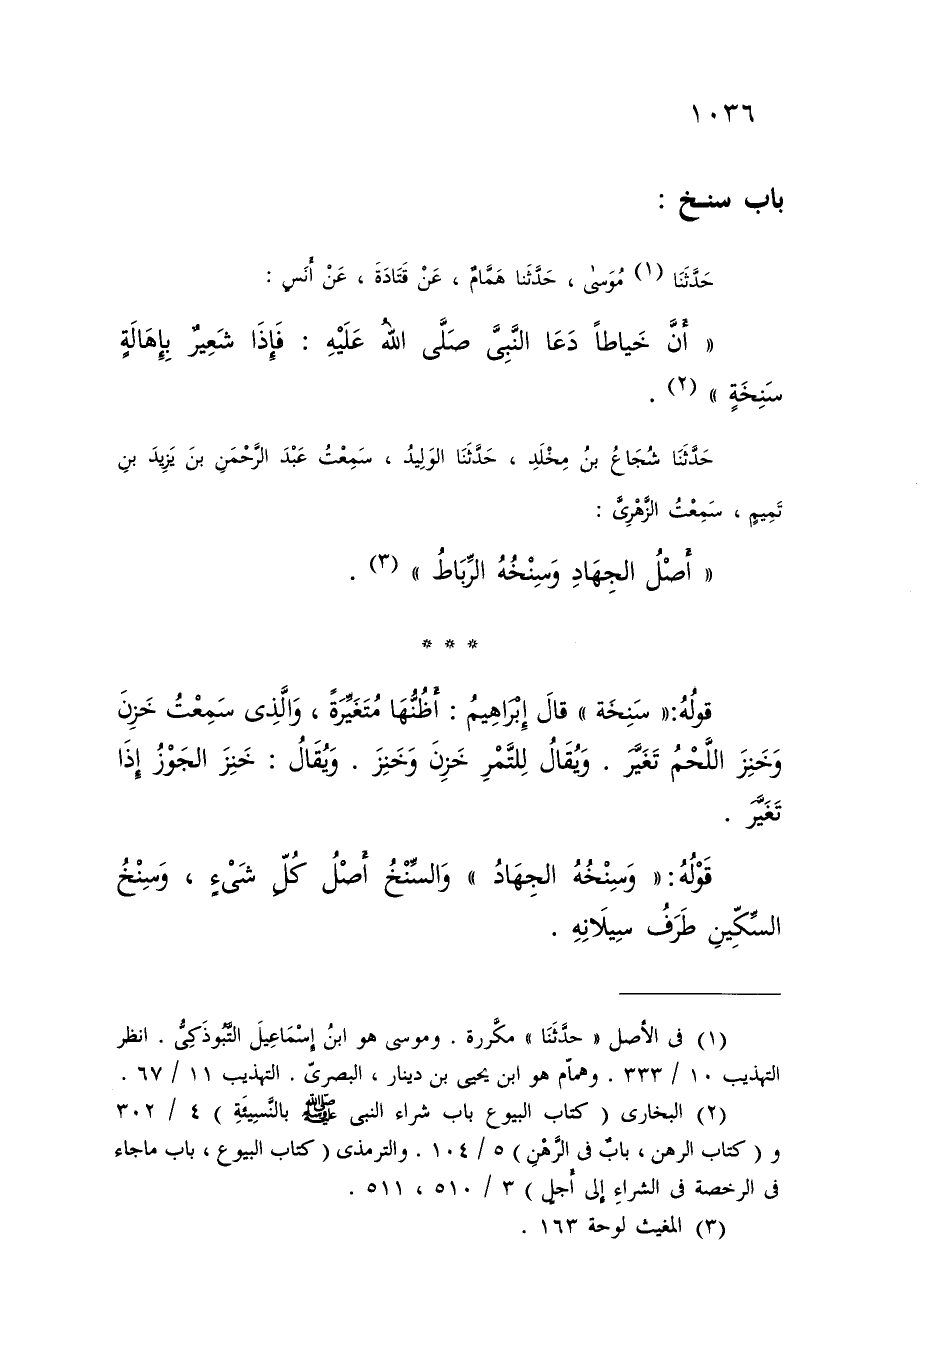 ١٠٣٦
باب سنـخ :
حَدَّثَنَا (١) مُوَسىٰ ، حَدَّثَنا هَمَّامٌ ، عَنْ قَتَادَةَ ، عَنْ أَنَسٍ :
« أَنَّ خَياطاً دَعَا النَّبِىَّ صَلَّى اللهُ عَلَيْهِ : فَإِذَا شَعِيرٌ بِإِهَالَةٍ
سَنِخَةٍ » (٢) .
حَدَّثَنَا شُجَاعُ بنُ مِخْلَدِ ، حَدَّثَنَا الوَلِيدُ ، سَمِعْتُ عَبْدَ الرَّحْمَنِ بنَ يَزِيدَ بنِ
تَمِيمٍ ، سَمِعْتُ الزَّهْرِىَّ :
« أَصْلُ الجِهَادِ وَسِنْخُهُ الرِّبَاطُ » (٣) .
* * *
قولُهُ:« سَنِخَة » قالَ إِبْرَاهِيمُ : أَظُنُّهَا مُتَغَيِّرَةً ، وَالَّذِى سَمِعْتُ خَزِنَ
وَخَنِزَ اللَّحْمُ تَغَيَّرَ . وَيُقَالُ لِلتَّمْرِ خَزِنَ وَخَنِزَ . وَيُقَالُ : خَنِزَ الجَوْزُ إِذَا
تَغَيَّرَ .
قَوْلُهُ:« وَسِنْخُهُ الجِهَادُ » وَالسِّنْخُ أَصْلُ كُلِّ شَىْءٍ ، وَسِنْخُ
السِّكِّينِ طَرَفُ سِيلَانِهِ .
(١) فى الأصل « حدَّثَنَا » مكَّررة . وموسى هو ابنُ إِسْمَاعِيلَ التَّبُوذَكِىُّ . انظر
التهذيب ١٠ / ٣٣٣ . وهمّام هو ابن يحيى بن دينار ، البصرىّ . التهذيب ١١ / ٦٧ .
(٢) البخارى ( كتاب البيوع باب شراء النبى ﷺ بالنَّسِيئَةِ ) ٤ / ٣٠٢
و ( كتاب الرهن ، بابٌ فى الرَّهْنِ ) ٥ / ١٠٤ . والترمذى ( كتاب البيوع ، باب ماجاء
فى الرخصة فى الشراءِ إلى أَجلٍ ) ٣ / ٥١٠ ، ٥١١ .
(٣) المغيث لوحة ١٦٣ .